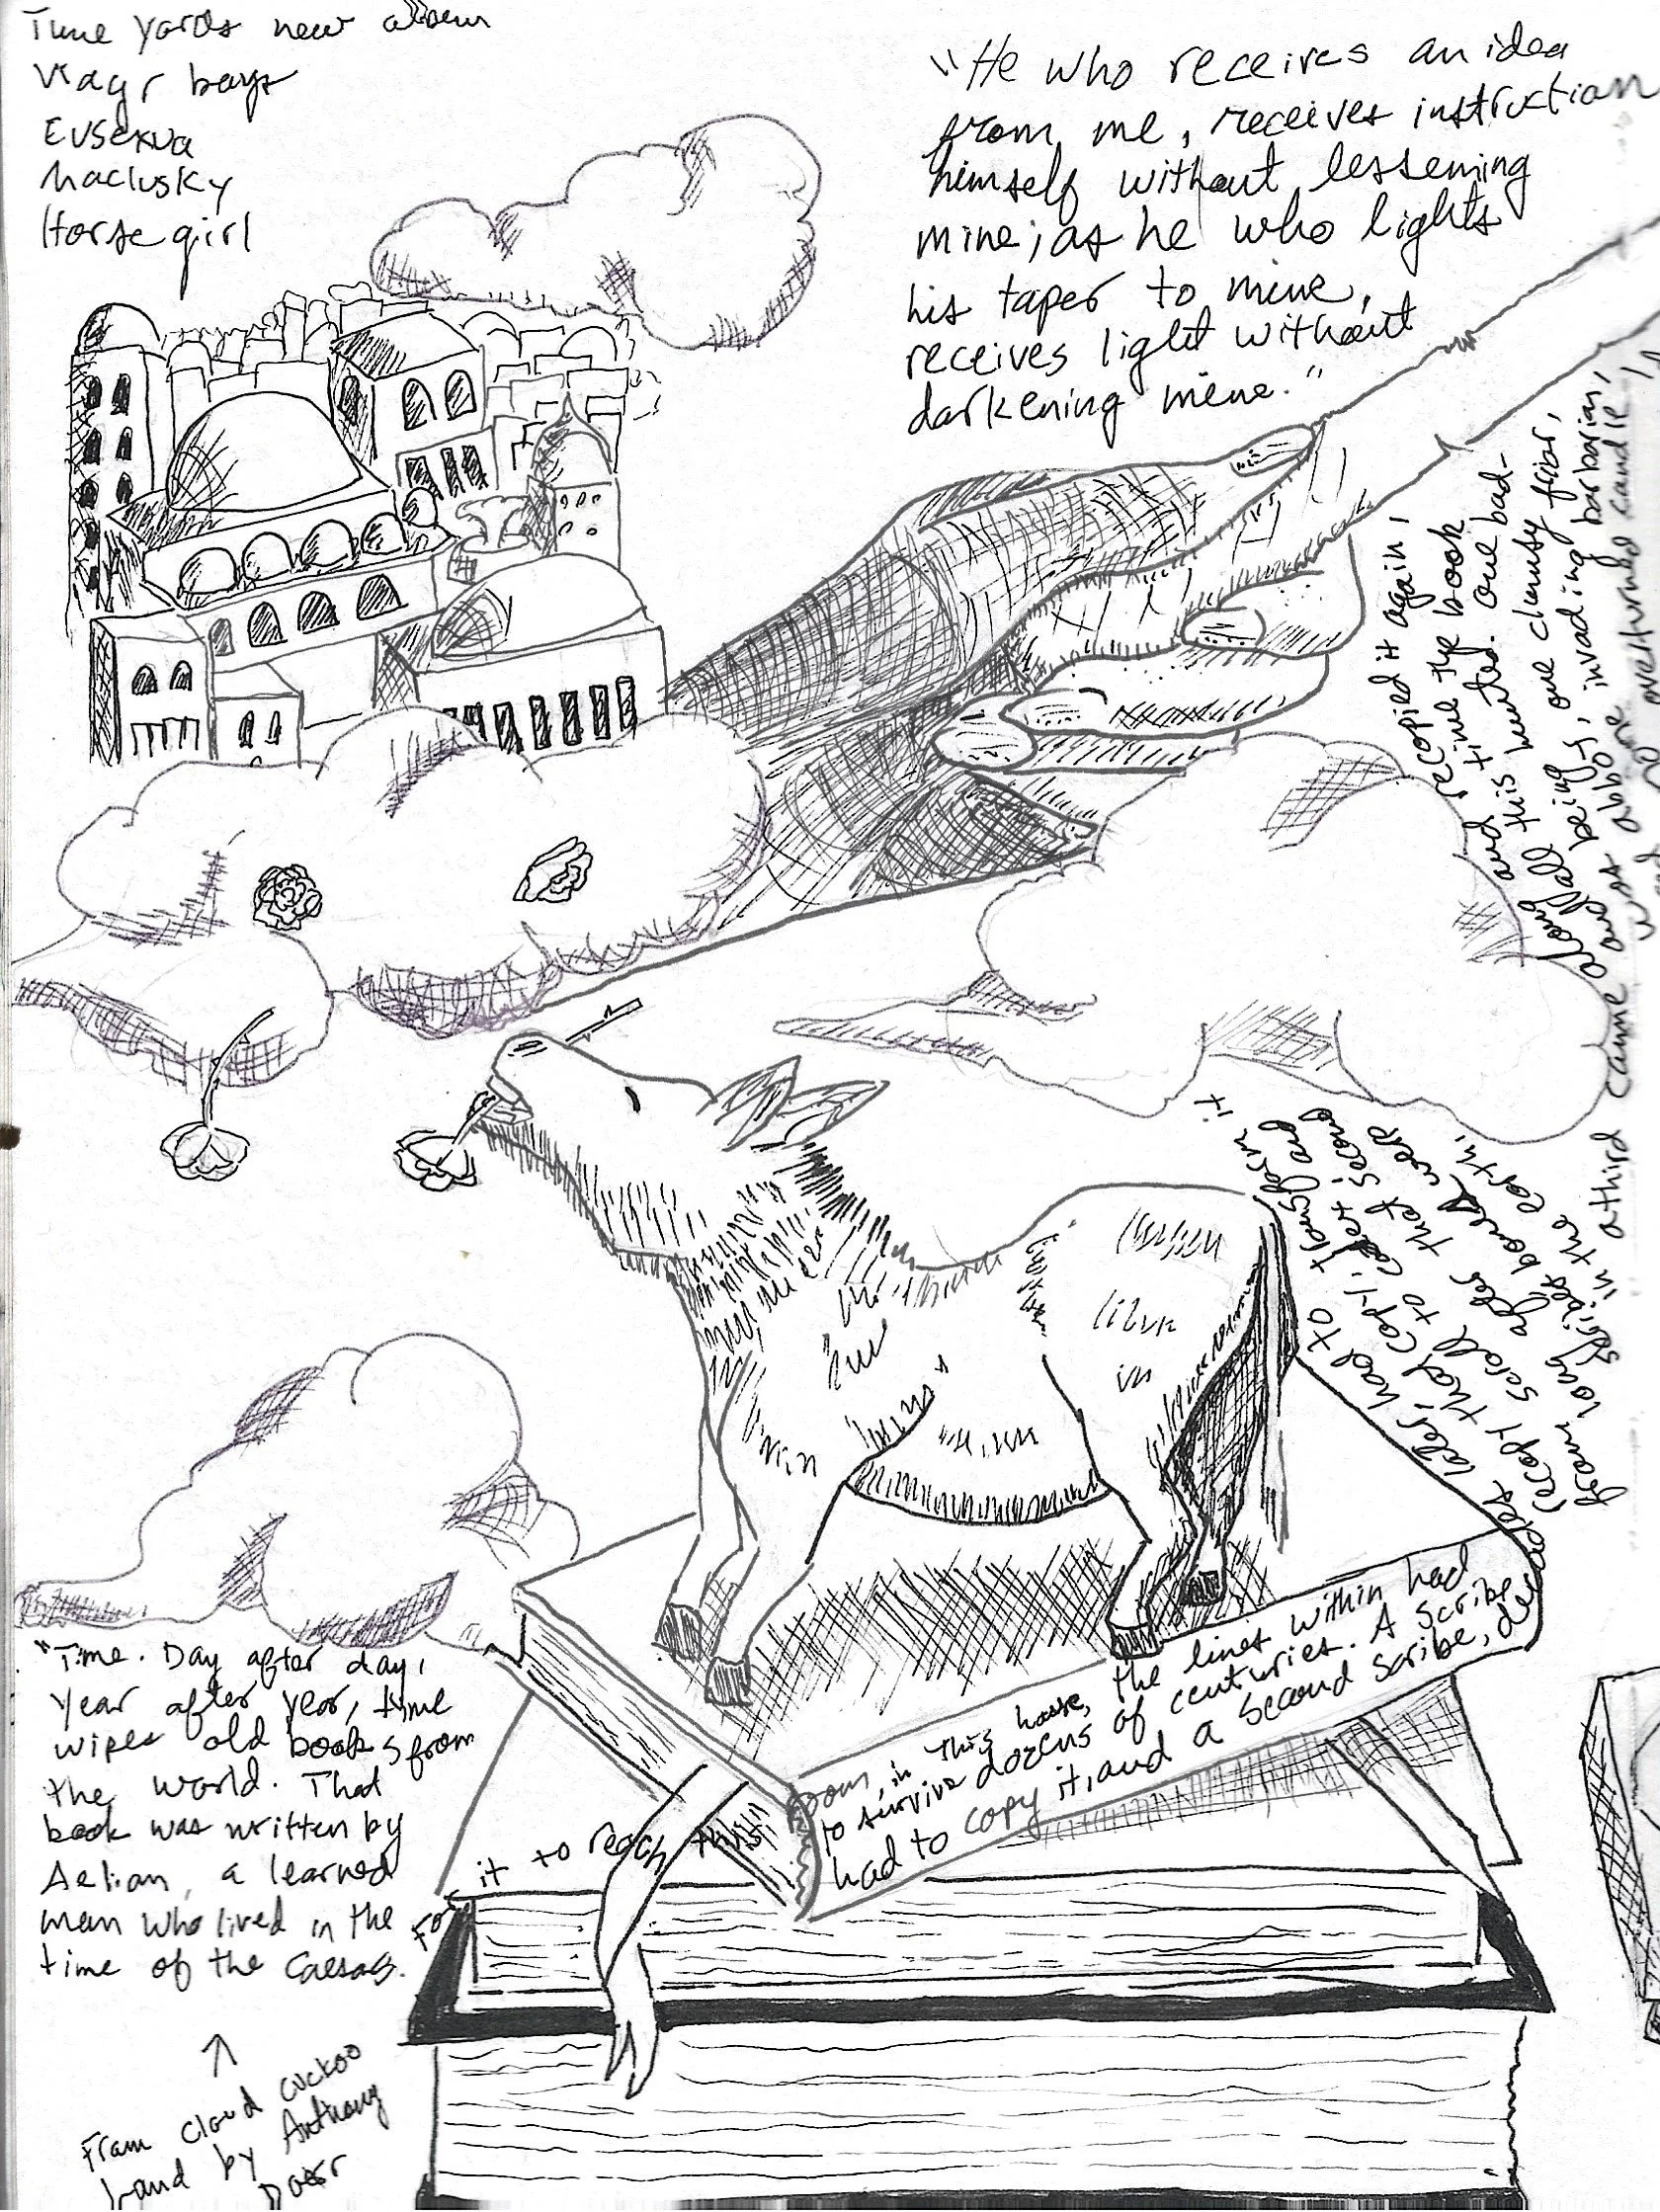 Tune Yards new albem
Viagr boys
Eusexua
Maclusky
Horsegirl
"He who receives an idea
from me, receives instruction
himself without lessening
mine; as he who lights
his taper to mine,
receives light without
darkening mine."
"Time. Day after day,
year after year, time
wipes old books from
the world. That
book was written by
Aelian, a learned
man who lived in the
time of the Caesars.
From Cloud Cuckoo
Land by Anthony
Doerr
For it to reach this
room, in this house, the lines within had
to survive dozens of centuries. A scribe
had to copy it, and a second scribe, decades later, had to transform it
recopy that copy, codex and
from scroll to that second
long after bones were
scribes in the earth,
a third came along and recopied it again,
and all this time the book
was being hunted. one bad-
abbot, one clumsy friar,
invading barbarian,
overturned candle